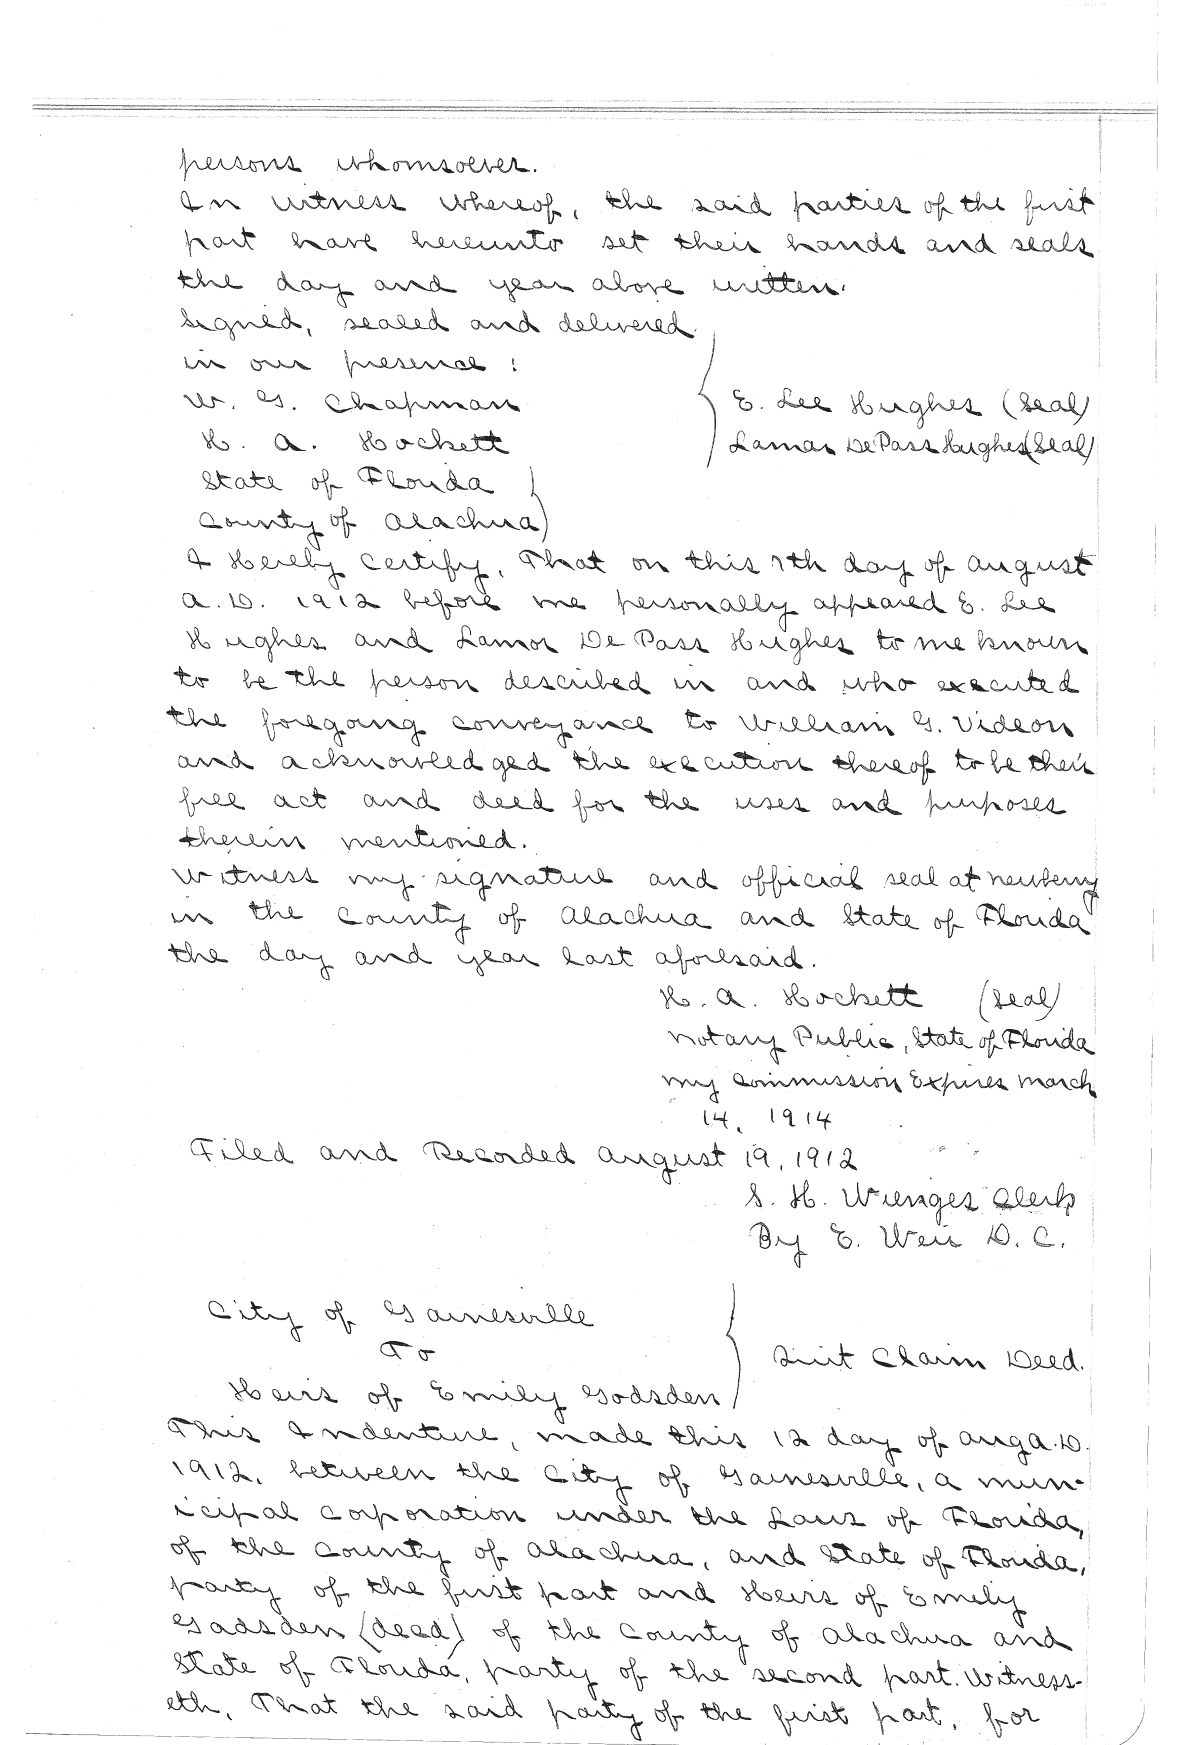 persons whomsoever.
In witness whereof, the said parties of the first
part have hereunto set their hands and seals
the day and year above written.
Signed, sealed and delivered
in our presence :
W. G. Chapman
E. Lee Hughes (Seal)
H. A. Hockett
Lamar De Pass Hughes (Seal)
State of Florida
County of Alachua
I Hereby Certify, That on this 7th day of August
A.D. 1912 before me personally appeared E. Lee
Hughes and Lamar De Pass Hughes to me known
to be the person described in and who executed
the foregoing conveyance to William G. Videon
and acknowledged the execution thereof to be their
free act and deed for the uses and purposes
therein mentioned.
Witness my signature and official seal at Newberry
in the County of Alachua and State of Florida
the day and year last aforesaid.
H. A. Hockett (Seal)
Notary Public, State of Florida
My Commission Expires March
14, 1914
Filed and Recorded August 19, 1912
S. H. Wienges Clerk
By E. Weir D. C.
City of Gainesville
To
Quit Claim Deed.
Heirs of Emily Godsden
This Indenture, made this 12 day of Aug A.D.
1912, between the City of Gainesville, a mun-
icipal Corporation under the Laws of Florida,
of the County of Alachua, and State of Florida,
party of the first part and Heirs of Emily
Gadsden (dead) of the County of Alachua and
State of Florida, party of the second part. Witness-
eth, That the said party of the first part, for